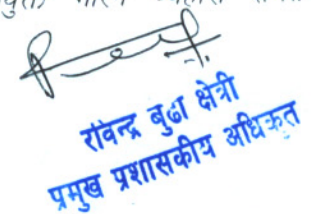 रविन्द्र बुढा क्षेत्री
प्रमुख प्रशासकीय अधिकृत